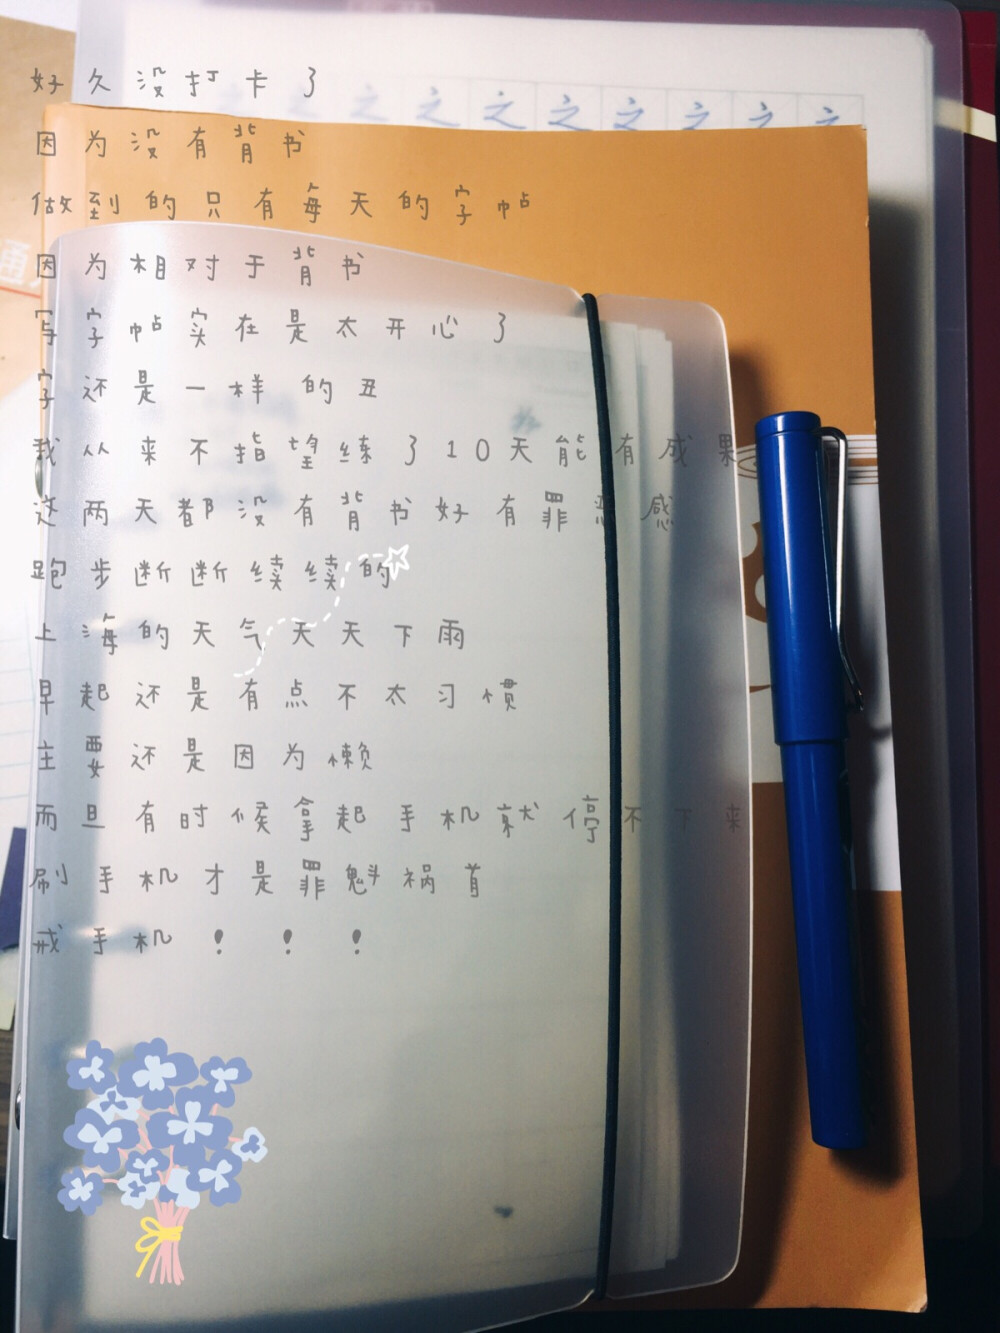 好久没打卡了
之 之 之 之 之 之 之 之
因为没有背书
做到的只有每天的字帖
因为相对于背书
通
写字帖实在是太开心了
字还是一样的丑
我从来不指望练了10天能有成果
这两天都没有背书好有罪恶感
跑步断断续续的
上海的天气天天下雨
早起还是有点不太习惯
主要还是因为懒
而且有时候拿起手机就停不下来
刷手机才是罪魁祸首
戒手机！！！